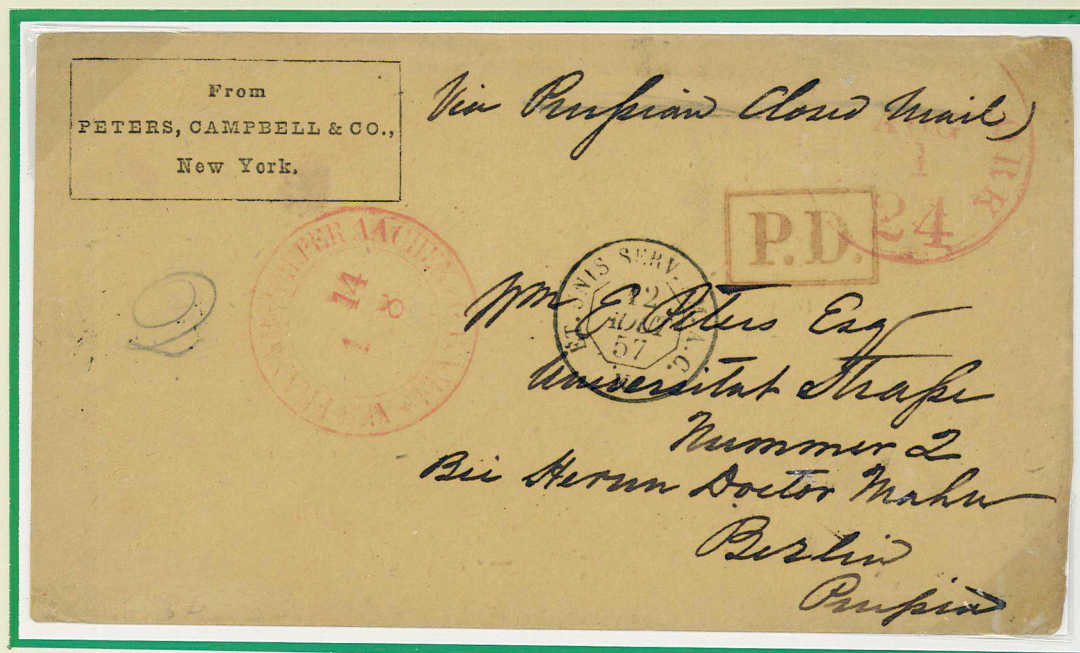 From
PETERS, CAMPBELL & CO.,
New York.
Via Prussian Closed Mail
AUG
1
24
P.D.
14
8
1
ET. UNIS SERV.
12
AOUT
57
2
Wm E Peters Esq
Universitat Strasse
Nummer 2
Bei Herrn Doctor Mahn
Berlin
Prussia